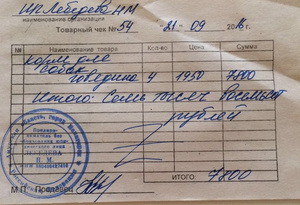 ИП Лебедева Н М
наименование организации
Товарный чек № 54 "21" 09 2016 г.
№ Наименование товара Кол-во Цена Сумма
корм для
собак
4 1950 7800
Итого: Семь тысяч восемьсот
рублей
ЛЕБЕДЕВА
Н. М.
М.П. Продавец
ИТОГО: 7800